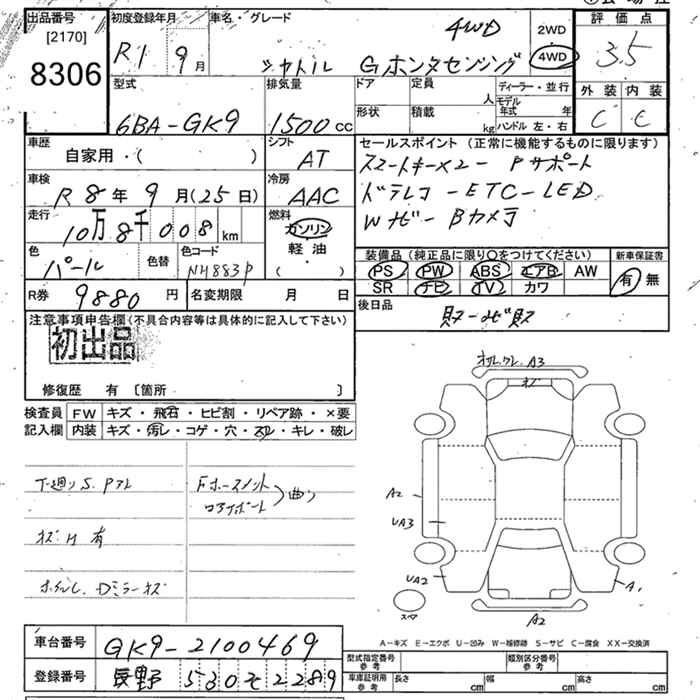 出品番号
[2170]
8306
初度登録年月
R1 9月
車名・グレード
4WD
シャトル Gホンダセンシング
2WD
4WD
評価点
3.5
外装 内装
C C
型式
6BA-GK9
排気量
1500cc
ドア
形状
定員
人
積載
kg
ディーラー・並行
モデル年式 年
ハンドル 左・右
車歴
自家用・( )
シフト
AT
セールスポイント (正常に機能するものに限ります)
スマートキー×2-Pサポート
ドラレコ-ETC-LED
Wナビ-Bカメラ
車検
R8年9月(25日)
冷房
AAC
走行
10万8千008km
燃料
ガソリン
軽油
( )
色
パール
色替
色コード
NH883P
装備品 (純正品に限り○をつけてください)
PS PW ABS エアB AW
SR ナビ TV カワ
新車保証書
有 無
R券 9880円
名変期限 月 日
後日品
注意事項申告欄(不具合内容等は具体的に記入して下さい)
初出品
修復歴 有 〔箇所 〕
検査員記入欄
FW キズ・飛石・ヒビ割・リペア跡・×要
内装 キズ・汚レ・コゲ・穴・スレ・キレ・破レ
A3
A2
UA3
UA2
A2
A1
スペア
下廻りS.
有
曲り
A-キズ E-エクボ U-凹み W-補修跡 S-サビ C-腐食 XX-交換済
車台番号 GK9-2100469
登録番号 長野 530 そ 2289
型式指定番号
参考
類別区分番号
参考
車庫証明用
参考
長さ cm
幅 cm
高さ cm